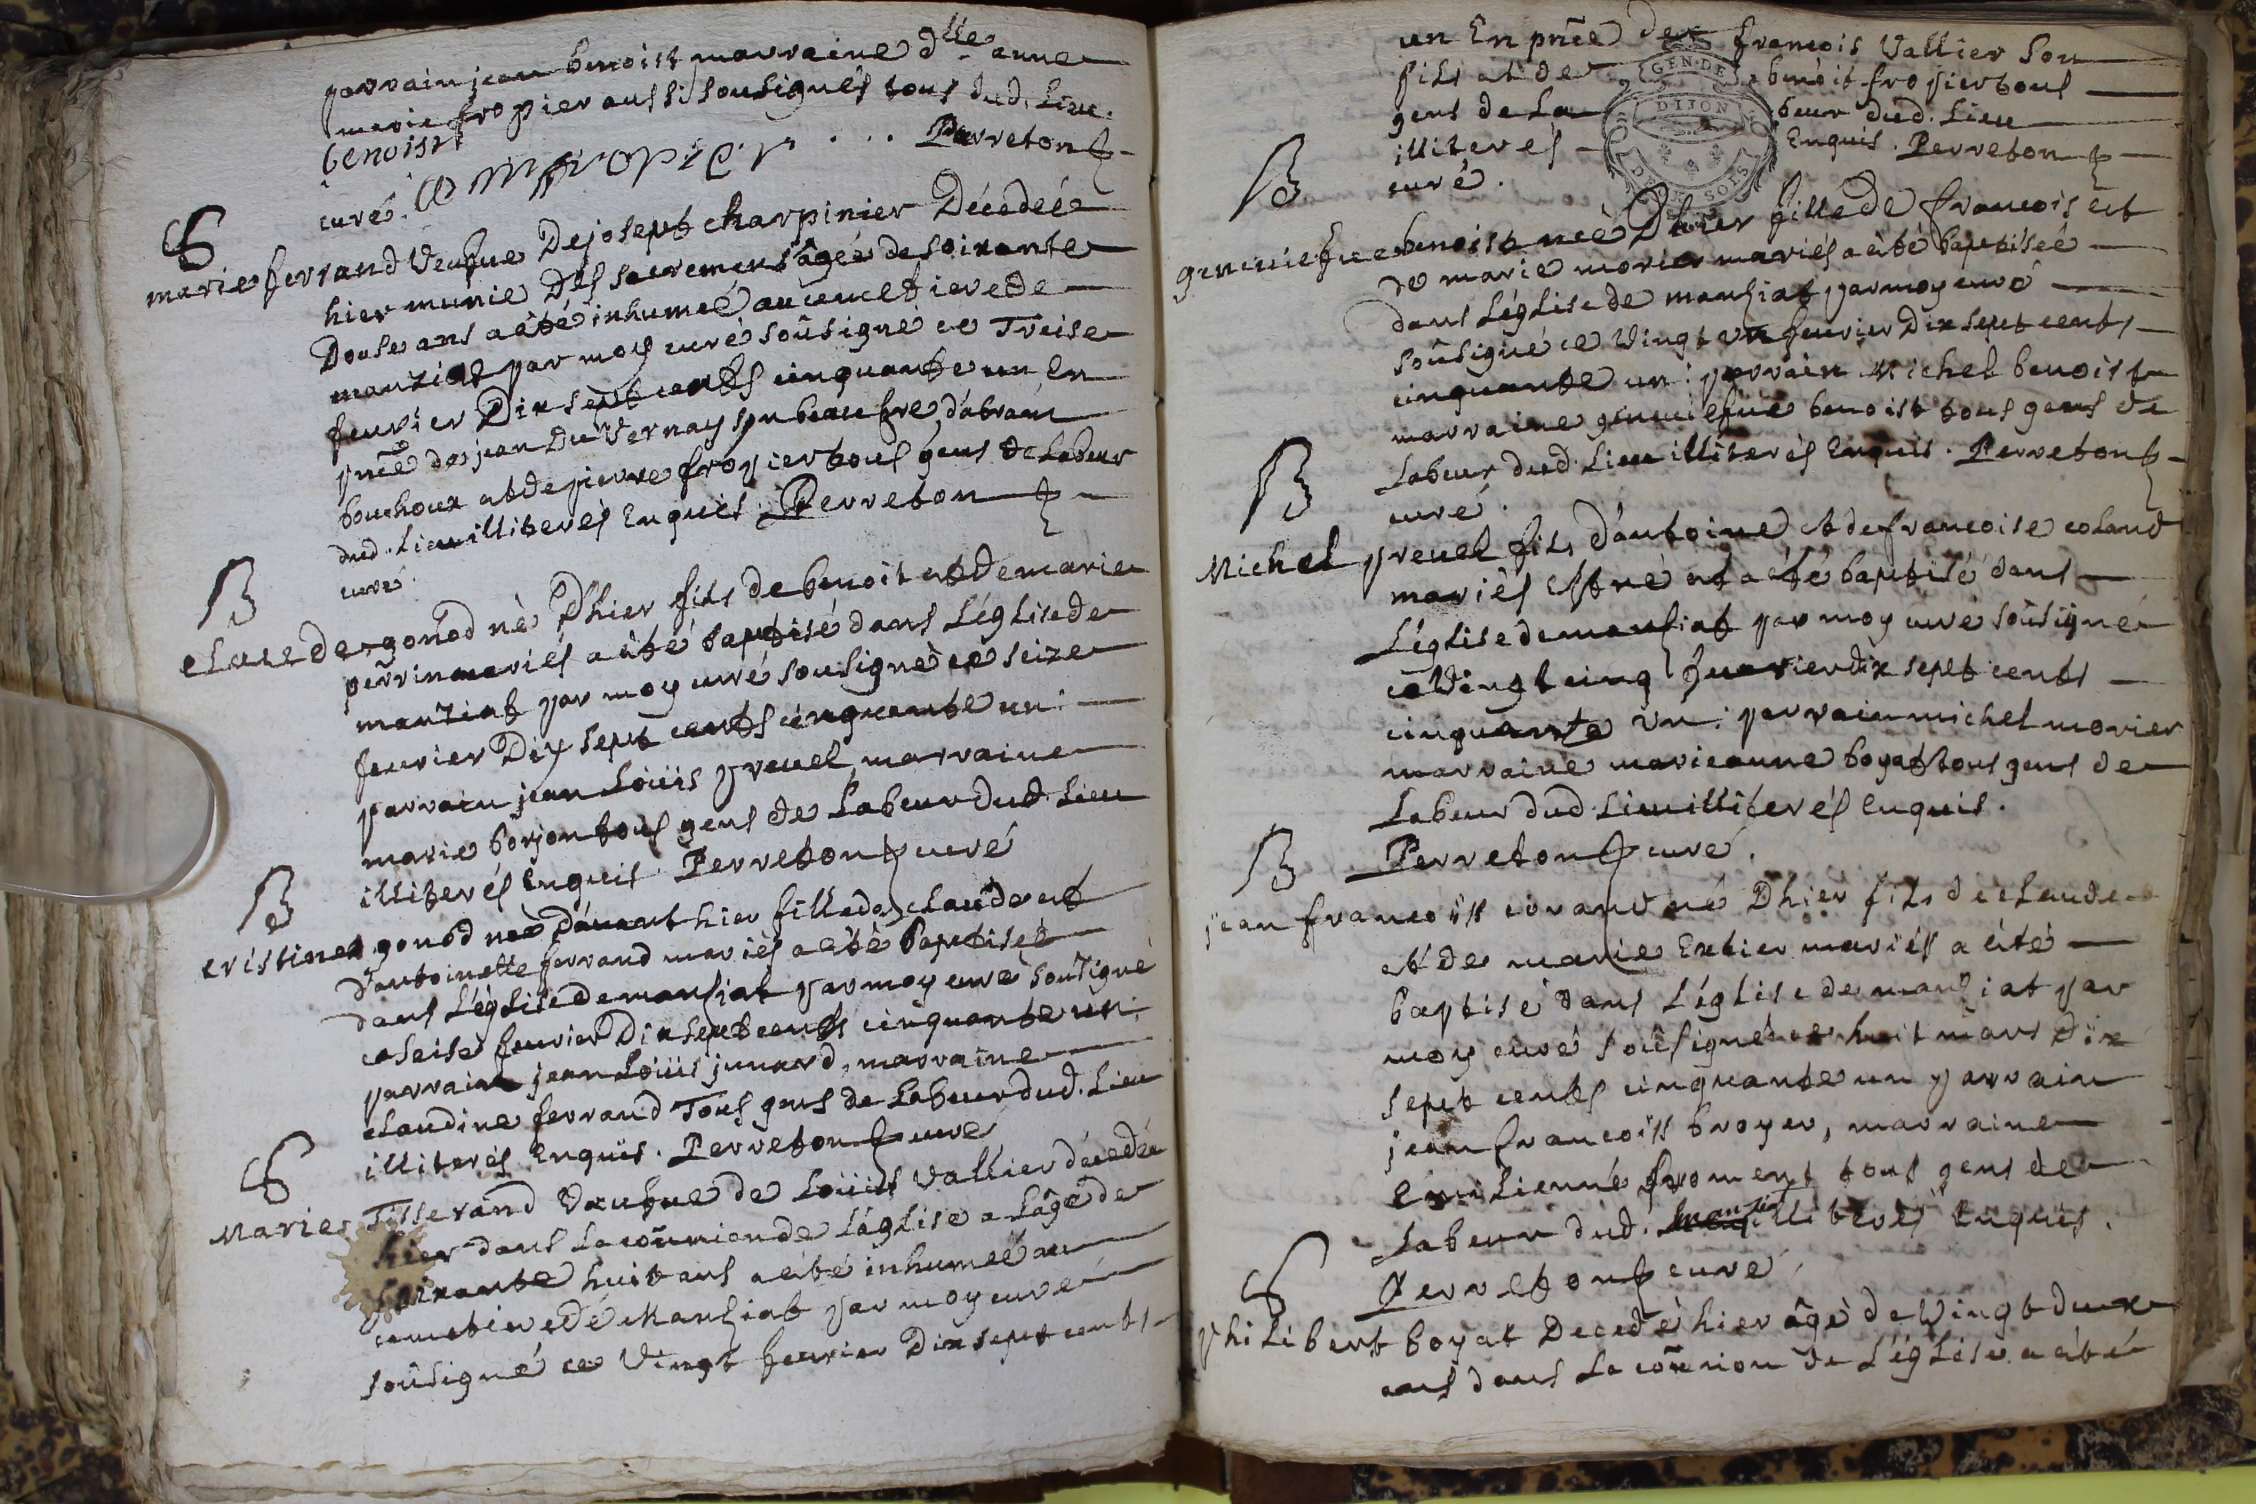 parrain jean benoist marraine dlle anne
marie fropier aussi sousignés tous dud. lieu.
benoist
curé. am fropier . . . . Perreton
S
marie ferrand Veufue De joseph charpinier Décedée
hier munie Des sacremens âgée de soixante
Douse ans a êté inhumeé au cimetiere de
manziat par moy curé soûsigné ce Treise
feurier Dix sept cents cinquante un En
pnce de jean Du Vernay son beaufre, d'abram
bouchoux et de pierre fropier tous gens de labeur
dud. lieu illiterés Enquis. Perreton
curé.
B
claude gonod né Dhier fils de benoit et de marie
perrin mariés a êté baptisé dans L'église de
manziat par moy curé sousigné ce seize
feurier Dix sept cents cinquante un.
parrain jean Loüis preuel, marraine
marie borjon tous gens de Labeur dud. lieu
illiterés Enquis. Perreton curé
B
cristine gonod neé d'auant hier fille de claude et
d'antoinette ferrand mariés a êté baptiseé
dans L'église de manziat par moy curé sousigné
ce seise feurier Dix sept cents cinquante un.
parrain jean Loüis junard, marraine
claudine ferrand Tous gens de Labeur dud. Lieu
illiterés Enquis. Perreton curé
S
Marie Tisserand Veufue de Loüis Vallier décedée
hier dans la coūnion de L'église a L'âge de
soixante huit ans a êté inhumeé au
cemetiere de Manziat par moy curé
soûsigné ce Vingt feurier Dix sept cents
un En pnce de francois Vallier son
fils et de benoit fropier tous
gens de La beur dud. Lieu
illiterés Enquis. Perreton
curé.
GEN. DE
DIJON
DEUX SOLS
B
geneuiefue benoist neé Dhier fille de francois et
de marie morier mariés a êté baptiseé
dans L'église de manziat par moy curé
soûsigné ce Vingt un feurier Dix sept cents
cinquante un: parrain Michel benoist
marraine geneuiefue benoist tous gens de
Labeur dud. Lieu illiterés Enquis. Perreton
curé.
B
Michel preuel fils d'antoine et de francoise coland
mariés est né et a êté baptisé dans
L'église de manziat par moy curé soûsigné
ce Vingt cinq feurier dix sept cents
cinquante un: parrain michel morier
marraine marieanne boyat tous gens de
Labeur dud. Lieu illiterés Enquis.
Perreton curé.
B
jean francoiss corand né Dhier fils de claude
et de marie Extier mariés a êté
baptisé dans L'église de manziat par
moy curé soûsigné ce huit mars Dix
sept cents cinquante un parrain
jean francoiss broyer, marraine
Emilienne froment tous gens de
Labeur dud. manziat illiterés Enquis.
Perreton curé.
S
philibert boyat Decedé hier âgé de Vingt deux
ans dans La coūnion de L'église a êté